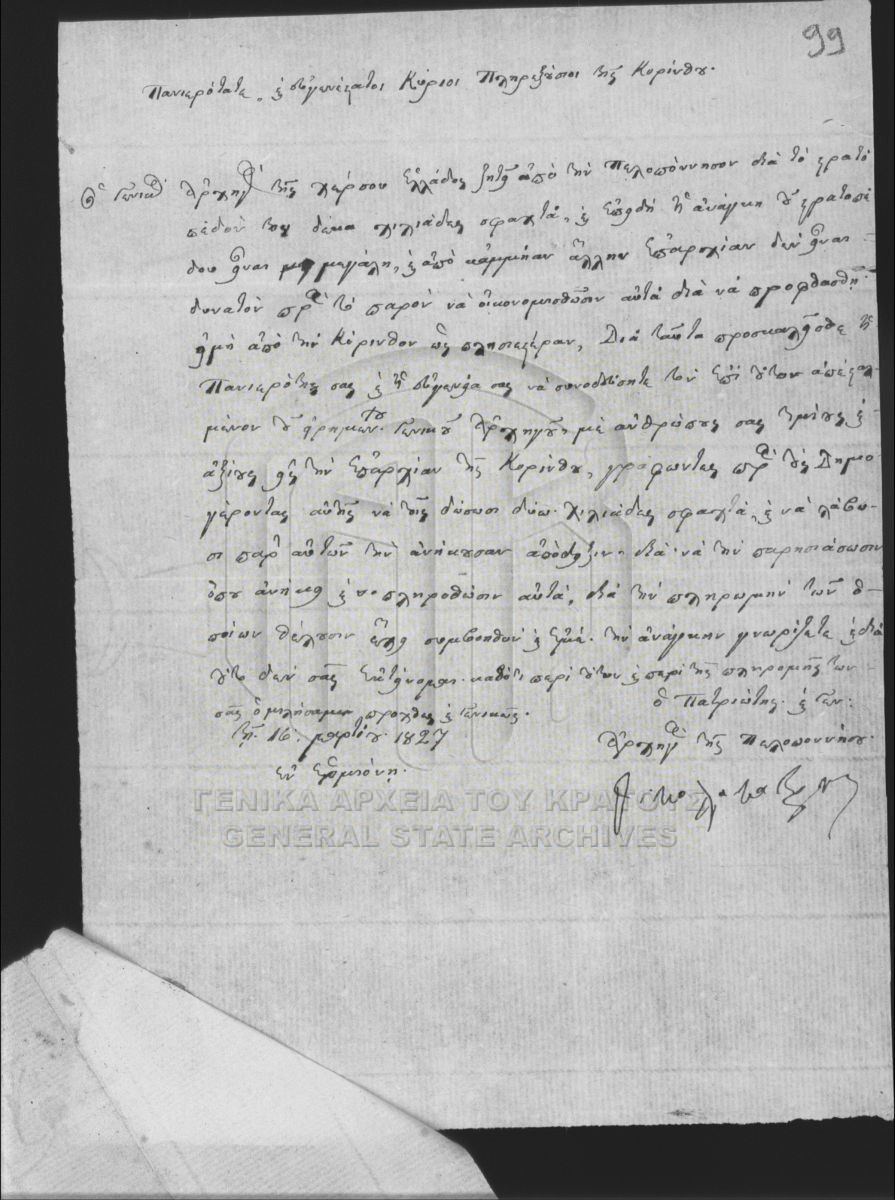 99
Πανιερώτατε, ϗ εὐγενέστατοι Κύριοι Πληρεξούσιοι τῆς Κορίνθου.
Ὁ Γενικὸς Ἀρχηγὸς τῆς χέρσου Ἑλλάδος ζητεῖ ἀπὸ τὴν Πελοπόννησον διὰ τὸ στρατό
πεδόν του δέκα χιλιάδες σφαχτά, ϗ ἐπειδὴ ἡ ἀνάγκη τοῦ στρατοπέ
δου εἶναι μεγάλη, ϗ ἀπὸ κἀμμίαν ἄλλην ἐπαρχίαν δὲν εἶναι
δυνατὸν πρὸς τὸ παρὸν νὰ οἰκονομηθῶσιν αὐτὰ διὰ νὰ προφθασθῇ
εἰμὴ ἀπὸ τὴν Κόρινθον ὡς πλησιεστέραν, Διὰ ταῦτα προσκαλεῖσθε ἡ
Πανιερότης σας ϗ ἡ εὐγενεία σας νὰ συνοδεύσητε τὸν ἐπὶ τούτου ἀπεσταλ
μένον τοῦ εἰρημένου Γενικοῦ Ἀρχηγοῦ, μὲ ἀνθρώπους σας τιμίους ϗ
ἀξίους εἰς τὴν ἐπαρχίαν τῆς Κορίνθου, γράφωντας πρὸς τοὺς Δημο
γέροντας αὐτῆς νὰ τοῖς δώσωσι δύω χιλιάδες σφαχτά, ϗ νὰ λάβω-
σι παρ' αὐτῶν τὴν ἀνήκουσαν ἀπόδειξιν, διὰ νὰ τὴν παρησιάσωσιν
ὅπου ἀνήκει ϗ νὰ πληροθῶσιν αὐτά, διὰ τὴν πληρωμὴν τῶν ὁ-
ποίων θέλουσιν συμβοηθοῦν ϗ τὴν ἀνάγκην γνωρίζετε ϗ διὰ
τοῦτο δὲν σᾶς ἐκτείνομαι. καθότι περὶ τούτου ϗ περὶ τῆς πληρομῆς των
σᾶς ὁμιλήσαμεν προχθὲς ϗ γενικῶς.
τῇ 16: μαρτίου 1827
ἐν Ἑρμιόνῃ.
ὁ Πατριώτης ϗ Γεν:
Ἀρχηγὸς τῆς Πελοποννήσου.
ΓΕΝΙΚΑ ΑΡΧΕΙΑ ΤΟΥ ΚΡΑΤΟΥΣ
GENERAL STATE ARCHIVES